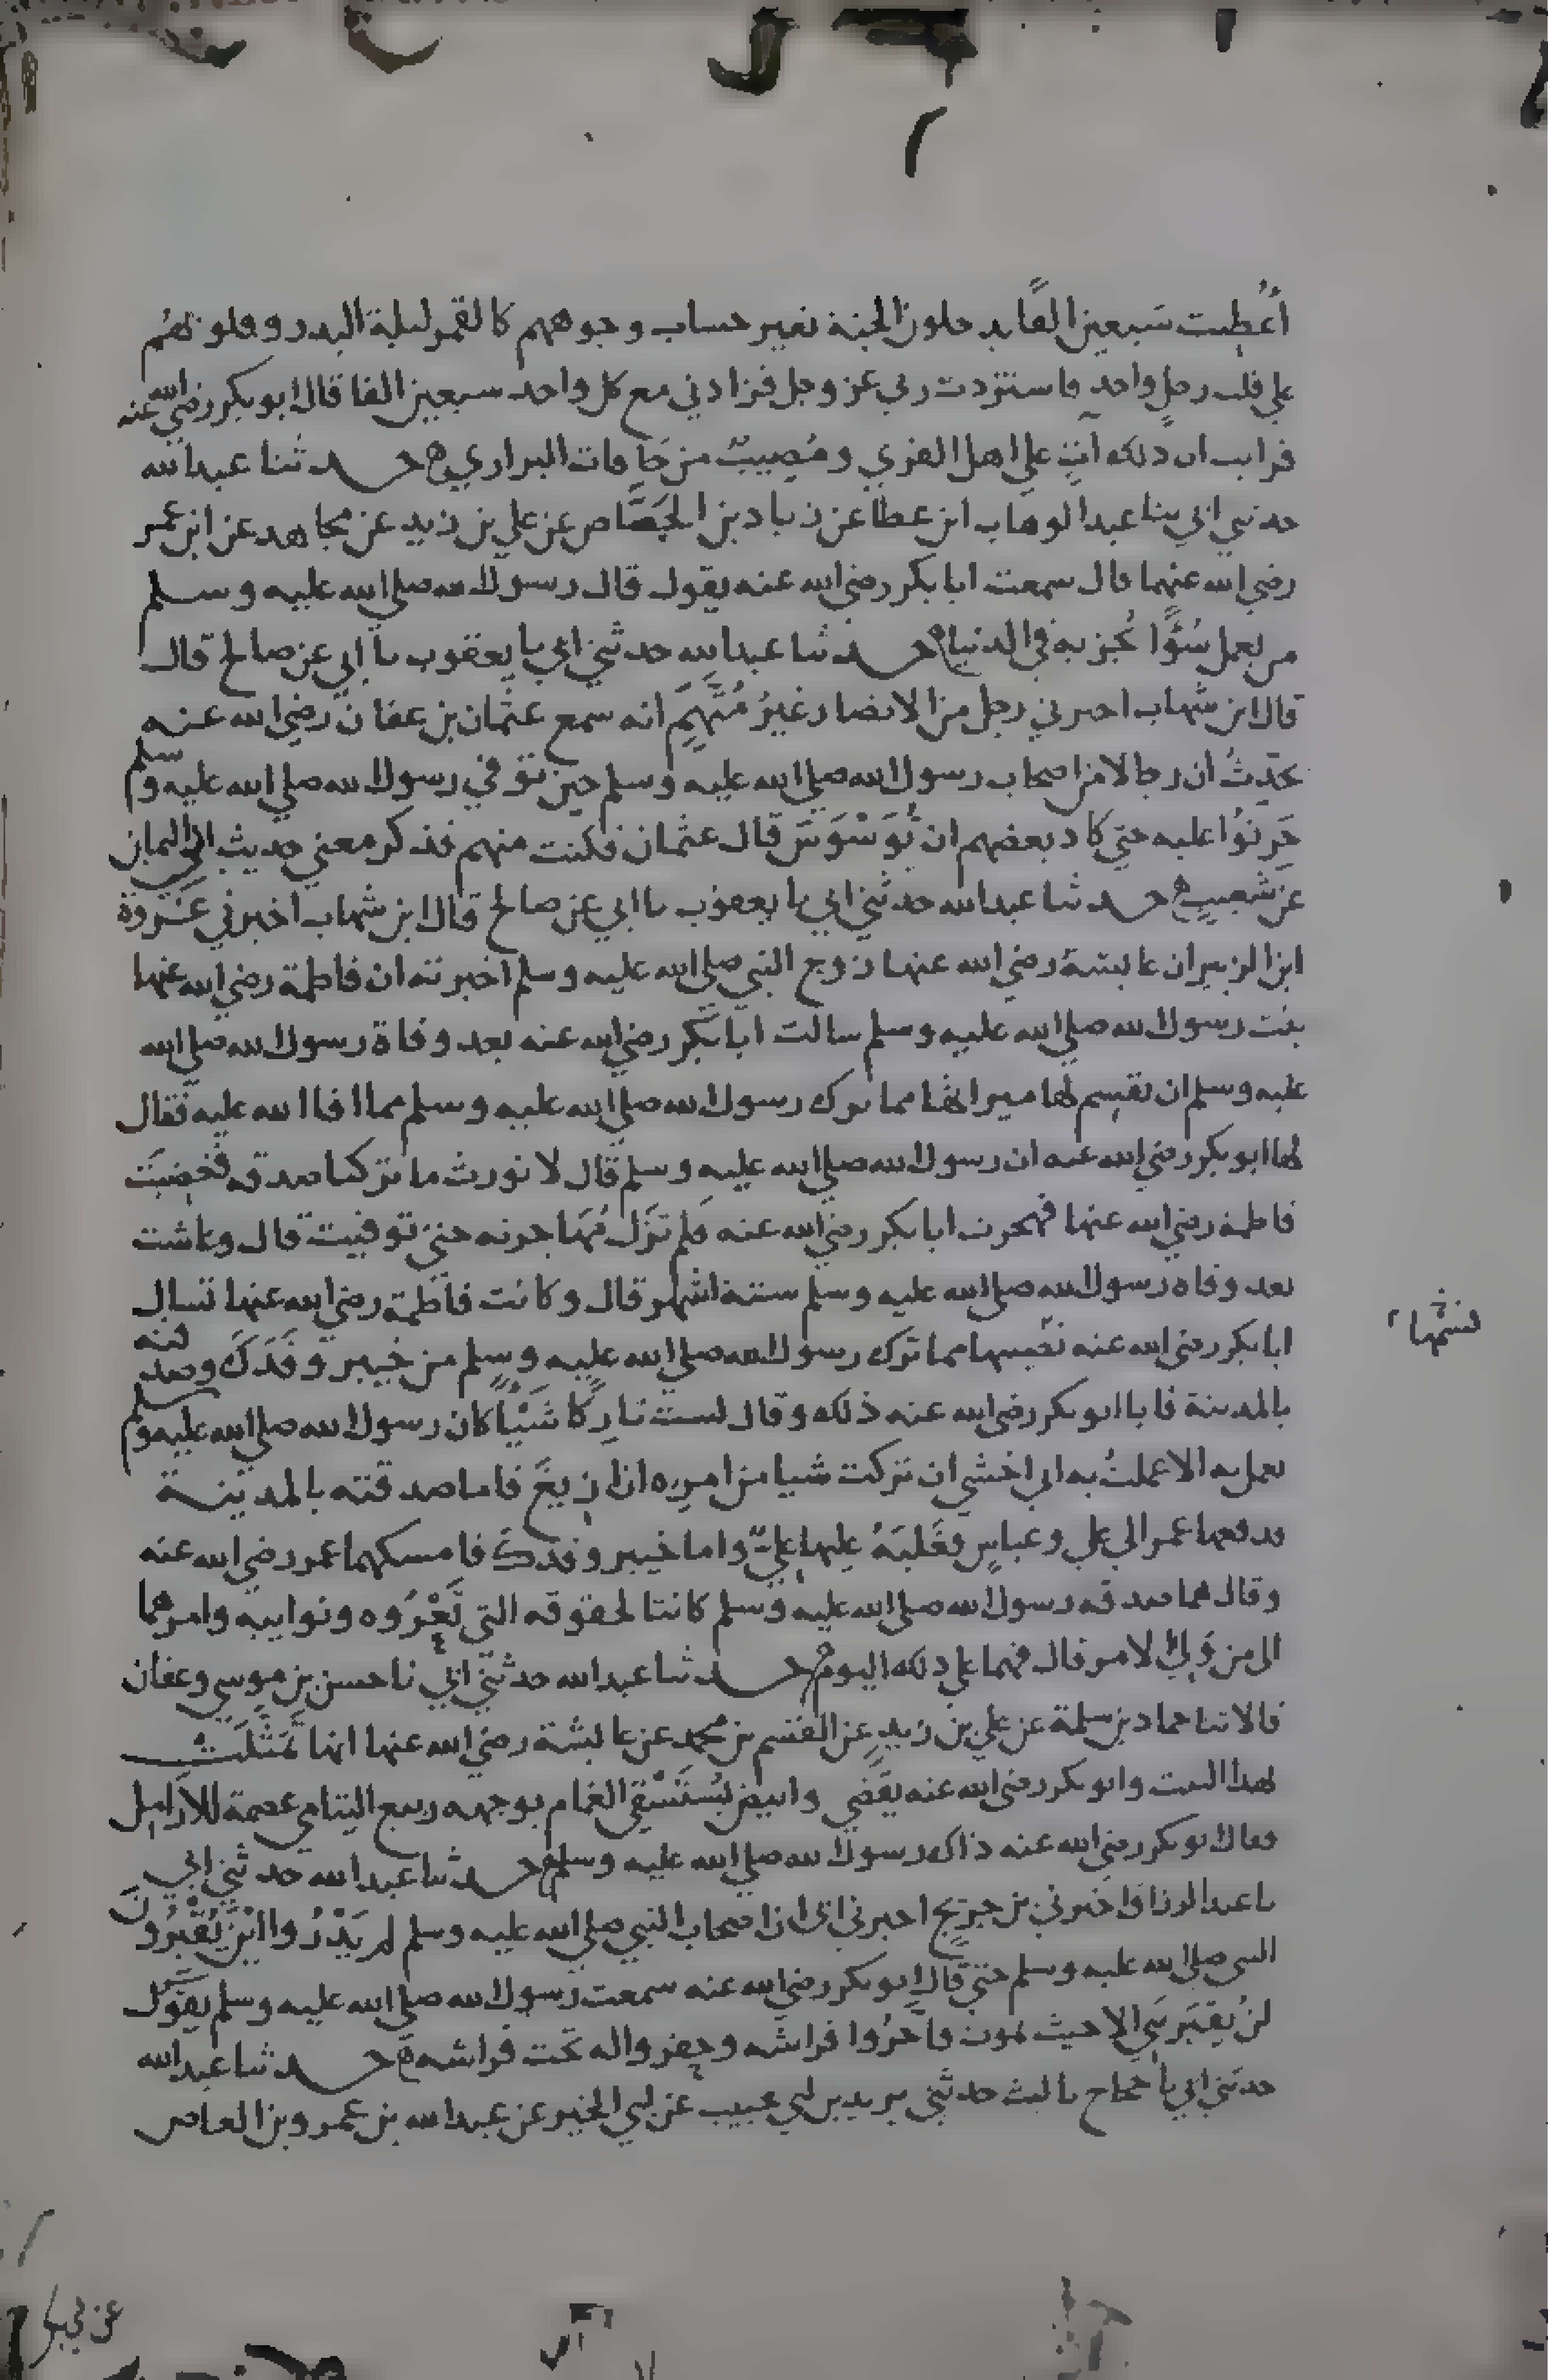 أُعْطِيت سَبعين الفًا يدخلون الجنة بغير حساب وجوههم كالقمر ليلة البدر وقلوبهم
علي قلب رجلٍ واحدٍ فاستزدت ربي عز وجل فزادني مع كل واحد سبعين الفا قال ابو بكر رضي الله عنه
فرايت ان ذلك آتٍ علي اهل القري ومُصِيبٌ من حَافات البراري حدثنا عبد الله
حدثني ابي نا عبد الوهاب ابن عطا عن زياد بن الجَصَّاص عن علي بن زيد عن مجاهد عن ابن عمر
رضي الله عنهما قال سمعت ابا بكر رضي الله عنه يقول قال رسول الله صلي الله عليه وسلم
من يعمل سُوًّا يُجز به في الدنيا حدثنا عبد الله حدثني ابي نا يعقوب نا ابي عن صالح قال
قال ابن شهاب اخبرني رجل من الانصار غيرُ مُتَّهَمٍ انه سمع عثمان بن عفان رضي الله عنه
يحدّثُ ان رجالا من اصحاب رسول الله صلي الله عليه وسلم حين توفي رسول الله صلي الله عليه وسلم
حَزِنوُا عليه حتي كاد بعضهم ان يُوَسْوَسَ قال عثمان فكنت منهم فذكر معني حديث ابي اليمان
عن شعيبٍ حدثنا عبد الله حدثني ابي نا يعقوب نا ابي عن صالح قال ابن شهاب اخبرني عُروة
ابن الزبير ان عايشة رضي الله عنها زوج النبي صلي الله عليه وسلم اخبرته ان فاطمة رضي الله عنها
بنت رسول الله صلي الله عليه وسلم سالت ابا بكر رضي الله عنه بعد وفاة رسول الله صلي الله
عليه وسلم ان يقسم لها ميراثها مما ترك رسول الله صلي الله عليه وسلم مما افا الله عليه فقال
لها ابو بكر رضي الله عنه ان رسول الله صلي الله عليه وسلم قال لا نورث ما تركنا صدقه فغضبَت
فاطمة رضي الله عنها فهجرت ابا بكر رضي الله عنه فلم تزَل مُهَاجرته حتي توفيت قال وعاشت
بعد وفاه رسول الله صلي الله عليه وسلم ستة اشهر قال وكانت فاطمة رضي الله عنها تسال
ابا بكر رضي الله عنه نصيبها مما ترك رسول الله صلي الله عليه وسلم من خيبر وفَدَكَ وصدقته
بالمدينة فابا ابو بكر رضي الله عنه ذلك وقال لست تارِكًا شَيْئًا كان رسول الله صلي الله عليه وسلم
يعمل به الا عملتُ به اني اخشي ان تركت شيا من امره ان ازيغَ فاما صدقته بالمدينة
فدفعها عمر الي علي وعباسٍ فغَلَبَهُ عليها عليٌّ واما خيبر وفدكَ فامسكهما عمر رضي الله عنه
وقال هما صدقه رسول الله صلي الله عليه وسلم كانتا لحقوقه التي تَعْرُوه ونوايبه وامرهما
الي من وَليَ الامر قال فهما علي ذلك اليوم حدثنا عبد الله حدثني ابي نا حسن بن موسي وعفان
قالا ثنا حماد بن سلمة عن علي بن زيدٍ عن القسم بن محمد عن عايشة رضي الله عنها انها تَمَثَّلَت
بهذا البيت وابو بكر رضي الله عنه يقضي وابيض يُستَسْقي الغمام بوجهه ربيع اليتامي عصمة للارامِل
فقال ابو بكر رضي الله عنه ذاك رسول الله صلي الله عليه وسلم حدثنا عبد الله حدثني ابي
نا عبد الرزاق اخبرني بن جريجٍ اخبرني ابي ان اصحاب النبي صلي الله عليه وسلم لم يَدْرُوا اينَ يُقْبِرُونَ
النبي صلي الله عليه وسلم حتي قال ابو بكر رضي الله عنه سمعت رسول الله صلي الله عليه وسلم يقول
لن يُقبَر نبي الا حيث يموت فاخَّرُوا فراشه وحفروا له تحت فراشه حدثنا عبد الله
حدثني ابي نا حجاج نا ليث حدثني يزيد بن ابي حبيب عن ابي الخير عن عبد الله بن عمرو بن العاص